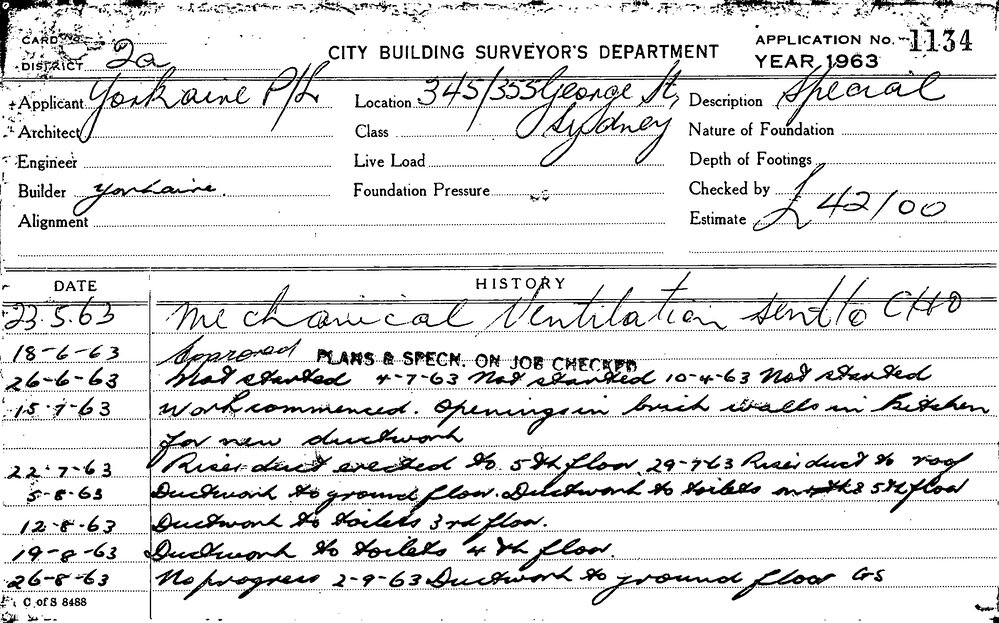 CARD No.
DISTRICT 2a
CITY BUILDING SURVEYOR'S DEPARTMENT
APPLICATION No. 1134
YEAR 1963
Applicant Yorkaire P/L
Location 345/355 George St, Sydney
Description Special
Architect
Class
Nature of Foundation
Engineer
Live Load
Depth of Footings
Builder Yorkaire.
Foundation Pressure
Checked by
Alignment
Estimate £42/00
DATE HISTORY
23.5.63 Mechanical Ventilation sent to CHO
18-6-63 Approved PLANS & SPECN. ON JOB CHECKED
26-6-63 Not started 4-7-63 Not started 10-4-63 Not started
15-7-63 Work commenced. Openings in brick walls in kitchen
for new ductwork
22-7-63 Riser duct erected to 5th floor 29-7-63 Riser duct to roof
5-8-63 Ductwork to ground floor. Ductwork to toilets 5th floor
12-8-63 Ductwork to toilets 3rd floor.
19-8-63 Ductwork to toilets 4th floor.
26-8-63 No progress 2-9-63 Ductwork to ground floor GS
C of S 8488